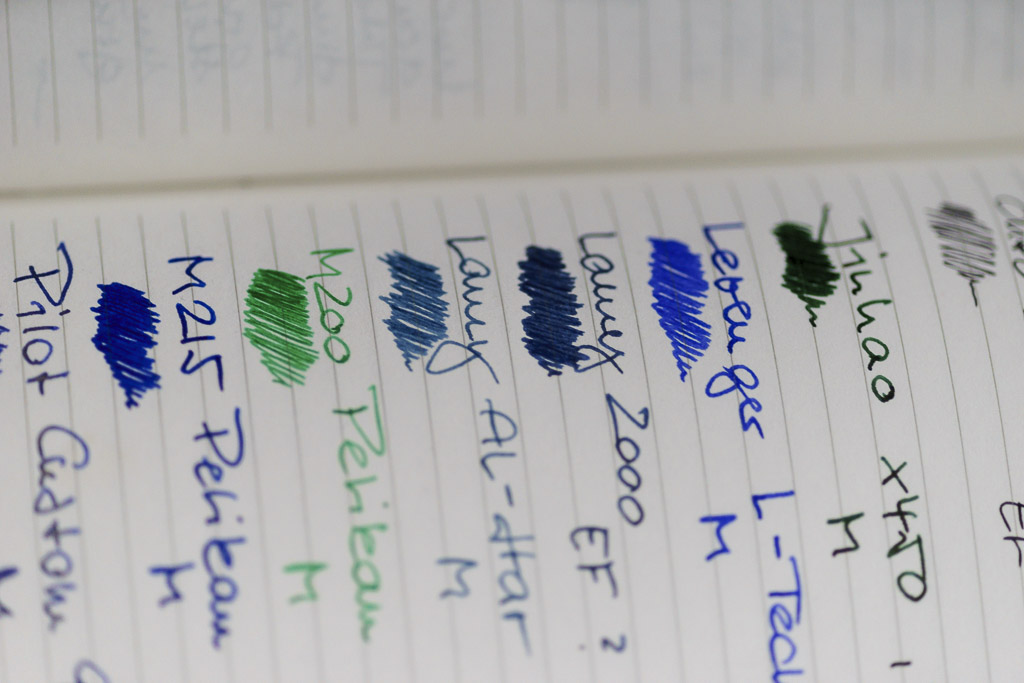 EF
Jinhao x450
M
Levenger L-Tech
M
Lamy 2000
EF ?
Lamy AL-Star
M
M200 Pelikan
M
M215 Pelikan
M
Pilot Custom
M